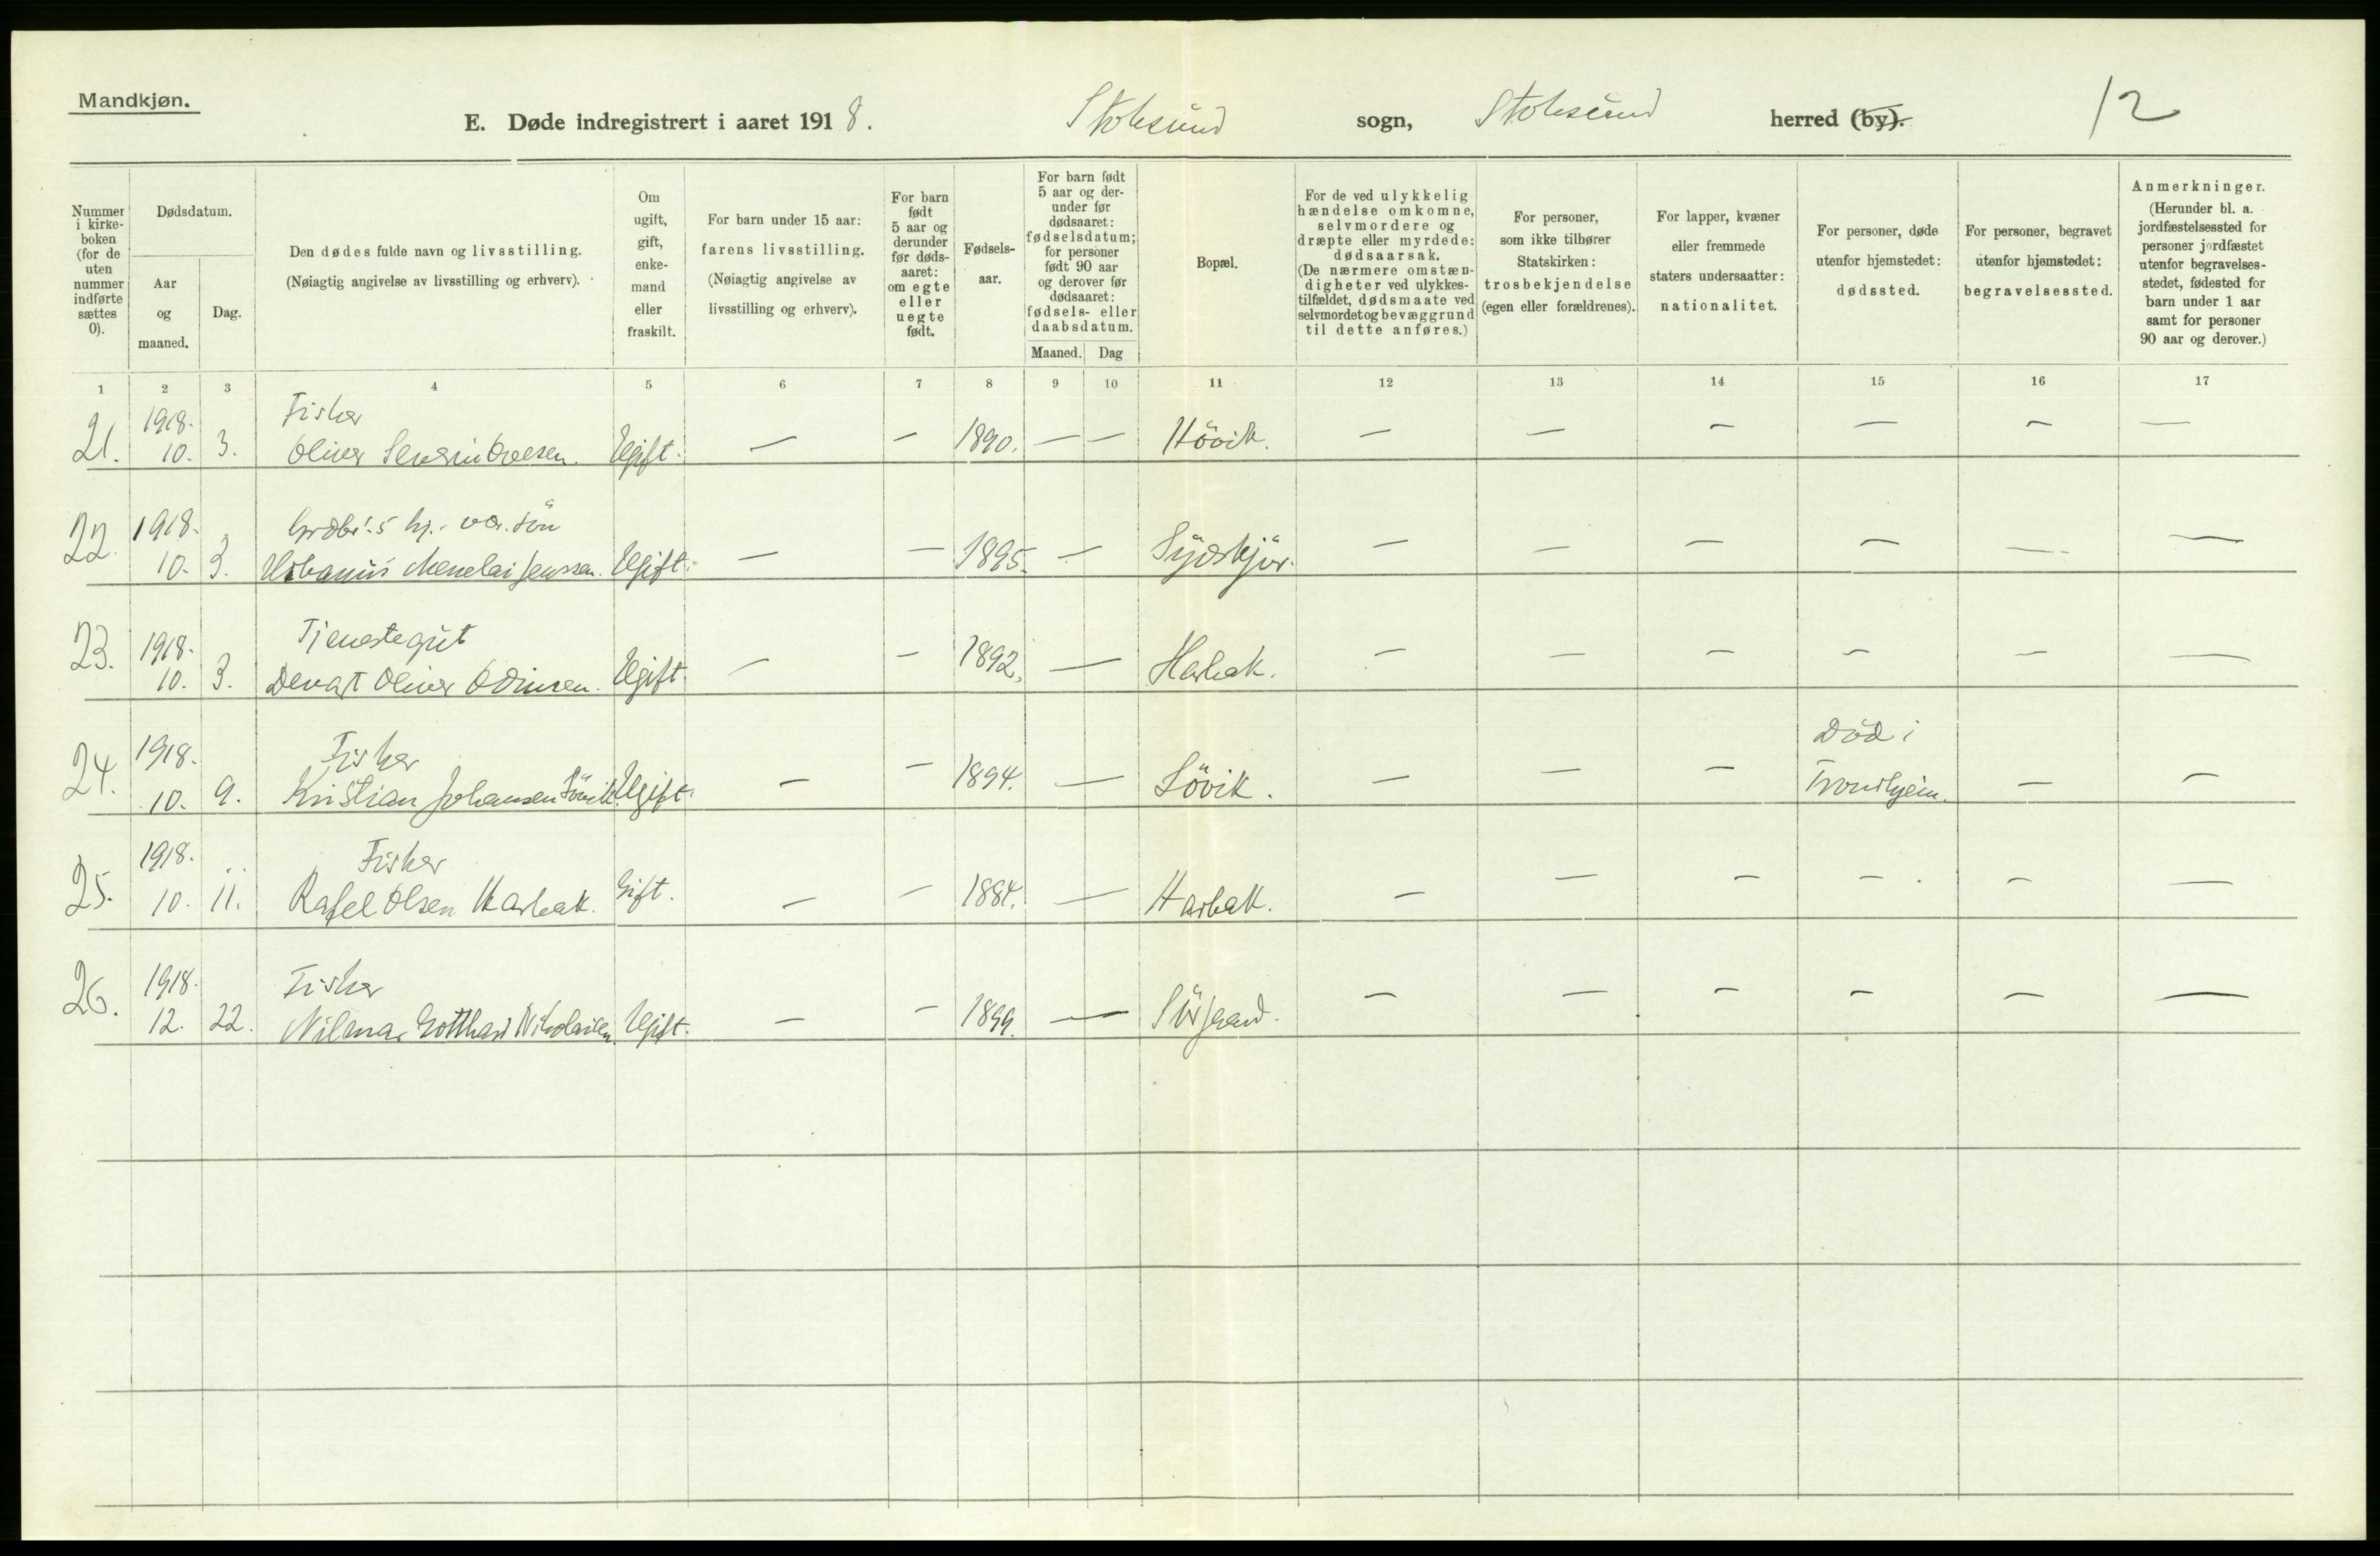 Mandkjøn.
E. Døde indregistrert i aaret 1918. Stoksund sogn, Stoksund herred (by). 12
Nummer i kirke-boken (for de uten nummer indførte sættes 0).
Dødsdatum.
Aar og maaned.
Dag.
Den dødes fulde navn og livsstilling.
(Nøiagtig angivelse av livsstilling og erhverv).
Om ugift, gift, enke-mand eller fraskilt.
For barn under 15 aar:
farens livsstilling.
(Nøiagtig angivelse av livsstilling og erhverv).
For barn født 5 aar og derunder før døds-aaret: om egte eller uegte født.
Fødsels-aar.
For barn født 5 aar og der-under før dødsaaret: fødselsdatum; for personer født 90 aar og derover før dødsaaret: fødsels- eller daabsdatum.
Maaned. Dag
Bopæl.
For de ved ulykkelig hændelse omkomne, selvmordere og dræpte eller myrdede: dødsaarsak. (De nærmere omstæn-digheter ved ulykkes-tilfældet, dødsmaate ved selvmordet og bevæggrund til dette anføres.)
For personer, som ikke tilhører Statskirken: trosbekjendelse (egen eller forældrenes).
For lapper, kvæner eller fremmede staters undersaatter: nationalitet.
For personer, døde utenfor hjemstedet: dødssted.
For personer, begravet utenfor hjemstedet: begravelsessted.
Anmerkninger.
(Herunder bl. a. jordfæstelsessted for personer jordfæstet utenfor begravelses-stedet, fødested for barn under 1 aar samt for personer 90 aar og derover.)
1 2 3 4 5 6 7 8 9 10 11 12 13 14 15 16 17
1918. Fisker
21. 10. 3. Oliver Severin Ovesen. Ugift. — — 1890. — — Hövik. — — — — — —
1918. Grdbr.s hj.- vær. sön
22. 10. 3. Urbanus Menelai Jenssen. Ugift. — — 1895. — Sydskjör. — — — — — —
1918. Tjenestegut
23. 10. 3. Devart Oliver Odinsen. Ugift. — — 1892. — Harbak. — — — — — —
1918. Fisker Död i
24. 10. 9. Kristian Johansen Sövik. Ugift. — — 1894. — Sövik. — — — Trondhjem. — —
1918. Fisker
25. 10. 11. Rafel Olsen Harbak. Gift. — — 1884. — Harbak. — — — — — —
1918. Fisker
26. 12. 22. Nilmar Gotthard Nikolaisen. Ugift. — — 1899. — — — — — — —